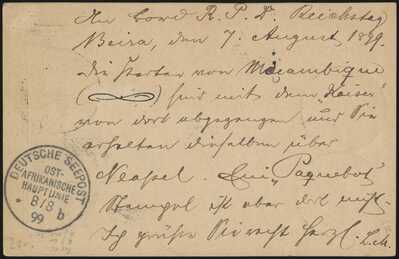 An Bord R. P. D. Reichstag
Beira, den 7. August 1899.
Die Karten von Moçambique
( ) sind mit dem "Kaiser"
von dort abgegangen und Sie
erhalten dieselben über
Neapel. Ein "Paquebot"
Stempel ist aber dort nicht.
Ich grüße Sie recht herzl.
DEUTSCHE SEEPOST
OST-
AFRIKANISCHE
HAUPTLINIE
* 8/8 b
99